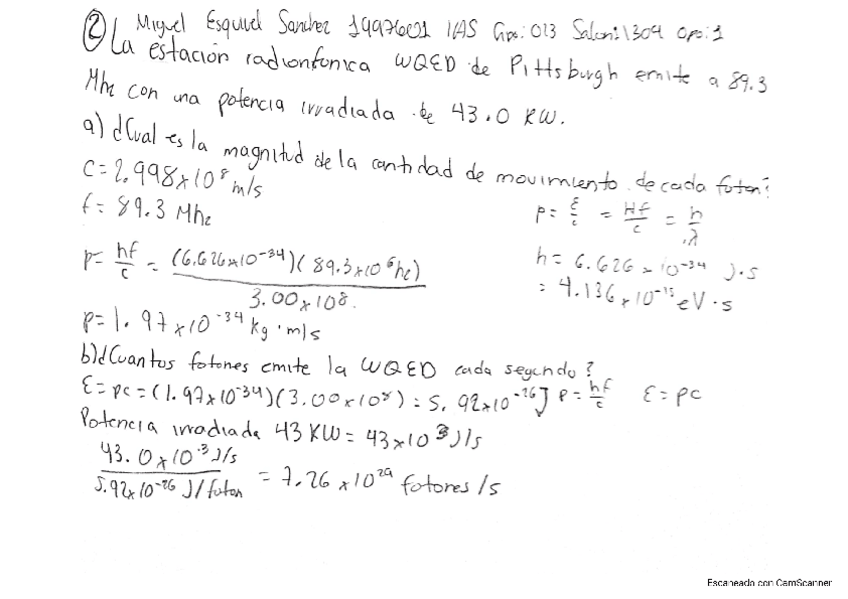 ② Miguel Esquivel Sanchez 19976021 1IAS Gpo: 013 Salon: 1304 Opo: 1
La estación radionfonica WQED de Pittsburgh emite a 89.3
Mhz con una potencia irradiada de 43.0 KW.
a) ¿Cual es la magnitud de la cantidad de movimiento de cada foton?
C = 2.998x10⁸ m/s
f = 89.3 Mhz
p = ε/c = Hf/c = h/λ
h = 6.626 x 10⁻³⁴ J·s
= 4.136 x 10⁻¹⁵ eV·s
p = hf/c = (6.626x10⁻³⁴)(89.3x10⁶hz) / 3.00x10⁸.
p = 1.97x10⁻³⁴ kg·m/s
b) ¿Cuantos fotones emite la WQED cada segundo?
ε = pc = (1.97x10⁻³⁴)(3.00x10⁸) = 5.92x10⁻²⁶ J p = hf/c ε = pc
Potencia irradiada 43 KW = 43x10³ J/s
43.0x10⁻³ J/s / 5.92x10⁻²⁶ J/foton = 7.26 x10²⁹ fotones /s
Escaneado con CamScanner